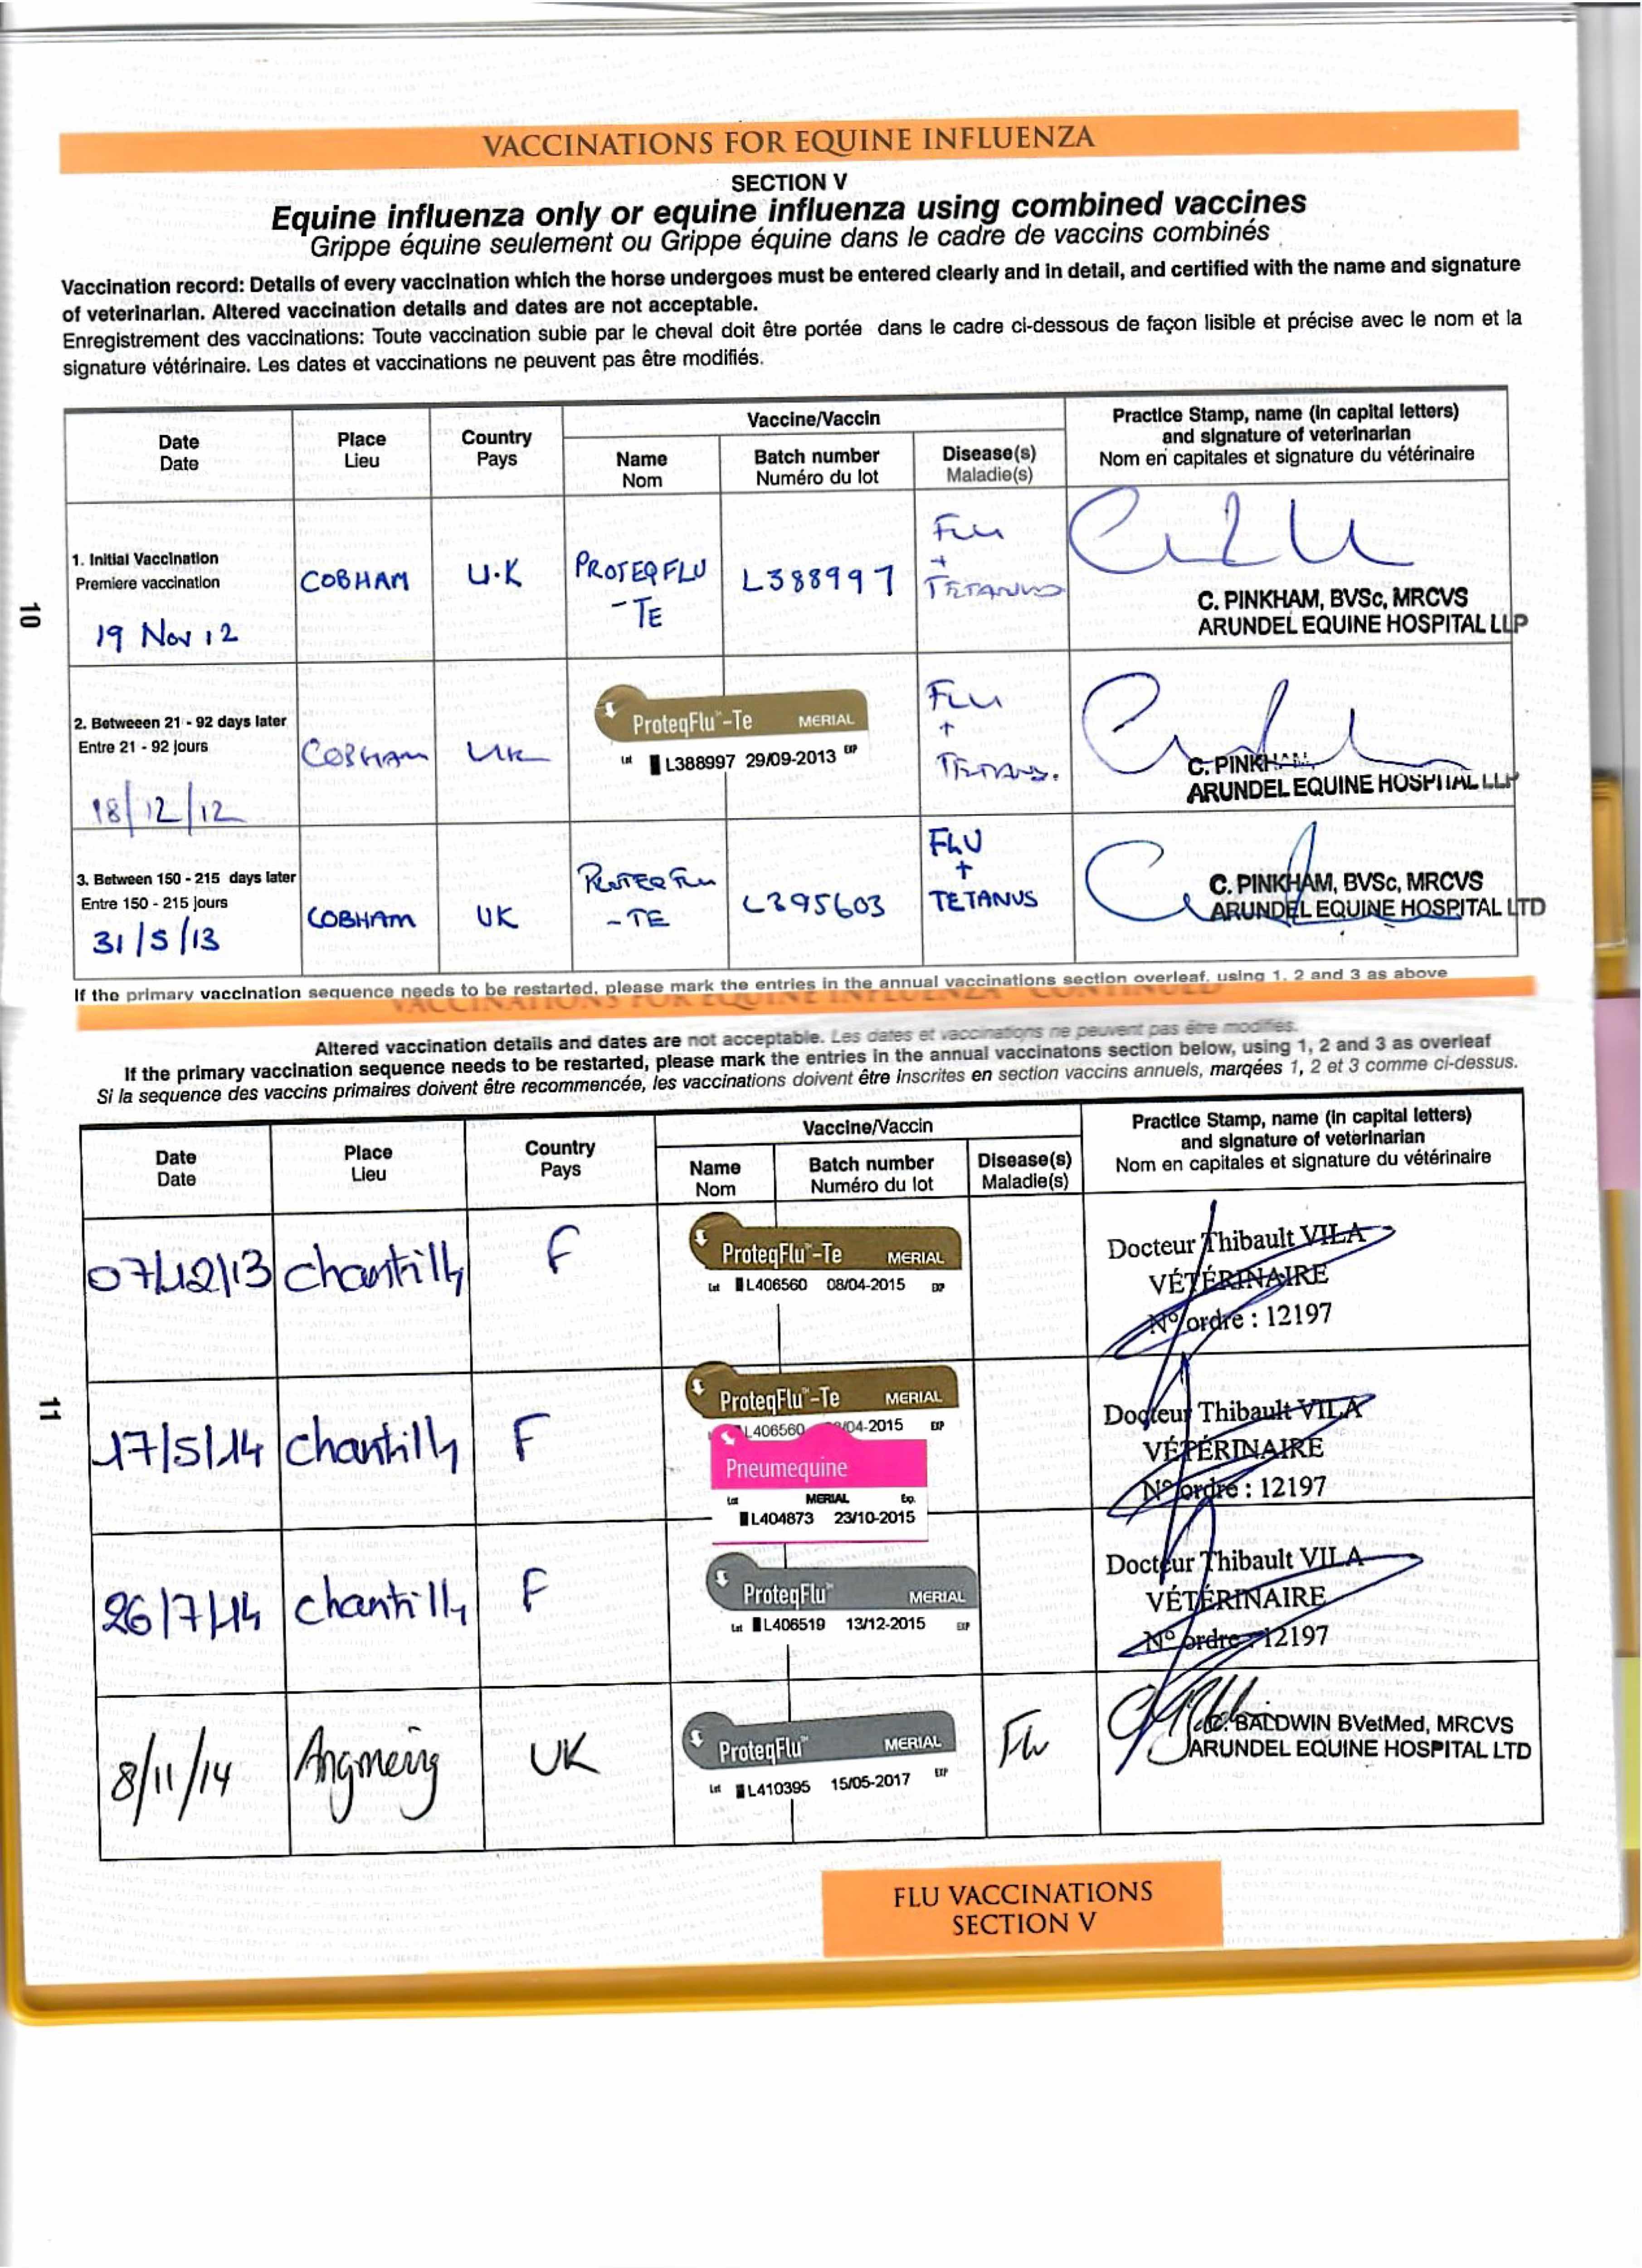 VACCINATIONS FOR EQUINE INFLUENZA
SECTION V
Equine influenza only or equine influenza using combined vaccines
Grippe équine seulement ou Grippe équine dans le cadre de vaccins combinés
Vaccination record: Details of every vaccination which the horse undergoes must be entered clearly and in detail, and certified with the name and signature
of veterinarian. Altered vaccination details and dates are not acceptable.
Enregistrement des vaccinations: Toute vaccination subie par le cheval doit être portée dans le cadre ci-dessous de façon lisible et précise avec le nom et la
signature vétérinaire. Les dates et vaccinations ne peuvent pas être modifiés.
Date
Date
Place
Lieu
Country
Pays
Vaccine/Vaccin
Name
Nom
Batch number
Numéro du lot
Disease(s)
Maladie(s)
Practice Stamp, name (in capital letters)
and signature of veterinarian
Nom en capitales et signature du vétérinaire
1. Initial Vaccination
Premiere vaccination
19 Nov 12
COBHAM
U.K
PROTEQFLU
-TE
L388997
Flu
+
TETANUS
C. PINKHAM, BVSc, MRCVS
ARUNDEL EQUINE HOSPITAL LLP
2. Betweeen 21 - 92 days later
Entre 21 - 92 jours
18/12/12
COBHAM
UK
ProteqFlu™-Te MERIAL
Lot L388997 29/09-2013 EXP
Flu
+
C. PINKHAM,
ARUNDEL EQUINE HOSPITAL LLP
3. Between 150 - 215 days later
Entre 150 - 215 jours
31/5/13
COBHAM
UK
PROTEQ Flu
-TE
L395603
FLU
+
TETANUS
C. PINKHAM, BVSc, MRCVS
ARUNDEL EQUINE HOSPITAL LTD
10
If the primary vaccination sequence needs to be restarted, please mark the entries in the annual vaccinations section overleaf, using 1, 2 and 3 as above
VACCINATIONS FOR EQUINE INFLUENZA CONTINUED
Altered vaccination details and dates are not acceptable. Les dates et vaccinations ne peuvent pas être modifiés.
If the primary vaccination sequence needs to be restarted, please mark the entries in the annual vaccinatons section below, using 1, 2 and 3 as overleaf
Si la sequence des vaccins primaires doivent être recommencée, les vaccinations doivent être inscrites en section vaccins annuels, marqées 1, 2 et 3 comme ci-dessus.
Date
Date
Place
Lieu
Country
Pays
Vaccine/Vaccin
Name
Nom
Batch number
Numéro du lot
Disease(s)
Maladie(s)
Practice Stamp, name (in capital letters)
and signature of veterinarian
Nom en capitales et signature du vétérinaire
07/12/13
Chantilly
F
ProteqFlu™-Te MERIAL
Lot L406560 08/04-2015 EXP
Docteur Thibault VILA
VÉTÉRINAIRE
N° ordre : 12197
17/5/14
Chantilly
F
ProteqFlu™-Te MERIAL
L406560 /04-2015 EXP
Pneumequine
Lot MERIAL Exp.
L404873 23/10-2015
Docteur Thibault VILA
VÉTÉRINAIRE
N° ordre : 12197
26/7/14
Chantilly
F
ProteqFlu™ MERIAL
Lot L406519 13/12-2015 EXP
Docteur Thibault VILA
VÉTÉRINAIRE
N° ordre : 12197
8/11/14
Angmering
UK
ProteqFlu™ MERIAL
Lot L410395 15/05-2017 EXP
Flu
C. BALDWIN BVetMed, MRCVS
ARUNDEL EQUINE HOSPITAL LTD
11
FLU VACCINATIONS
SECTION V